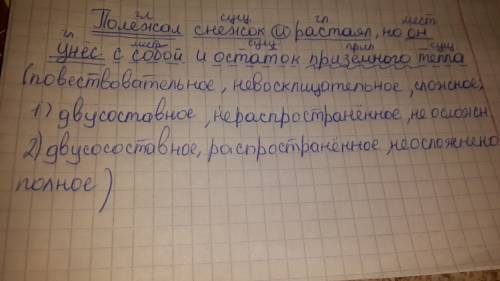 гл сущ гл мест
Полежал снежок и растаял, но он
гл мест сущ прил сущ
унёс с собой и остаток приземного тепла
(повествовательное, невосклицательное, сложное,
1) двусоставное, нераспространённое, неосложн
2) двусосоставное, распространённое, неосложнено
полное)